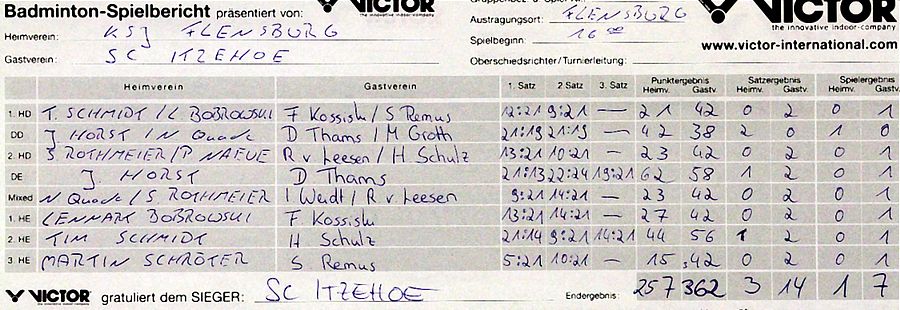 Badminton-Spielbericht präsentiert von: VICTOR the innovative indoor-company
Heimverein: KSJ FLENSBURG
Gastverein: SC ITZEHOE
Austragungsort: FLENSBURG
Spielbeginn: 16 00
Oberschiedsrichter/Turnierleitung:
VICTOR
the innovative indoor-company
www.victor-international.com
Heimverein Gastverein 1. Satz 2. Satz 3. Satz Punktergebnis Heimv. Gastv. Satzergebnis Heimv. Gastv. Spielergebnis Heimv. Gastv.
1. HD T. SCHMIDT/L BOBROWSKI F Kossiski/S Remus 12:21 9:21 — 21 42 0 2 0 1
DD J HORST / N Quade D Thams/M Groth 21:19 21:19 — 42 38 2 0 1 0
2. HD S ROTHMEIER/P NAEVE R v Leesen / H Schulz 13:21 10:21 — 23 42 0 2 0 1
DE J. HORST D Thams 21:13 22:24 19:21 62 58 1 2 0 1
Mixed N Quade / S. ROTHMEIER I Weidt / R v Leesen 9:21 14:21 — 23 42 0 2 0 1
1. HE LENNART BOBROWSKI F Kossiski 13:21 14:21 — 27 42 0 2 0 1
2. HE TIM SCHMIDT H Schulz 21:14 9:21 14:21 44 56 1 2 0 1
3. HE MARTIN SCHRÖTER S Remus 5:21 10:21 — 15 42 0 2 0 1
VICTOR gratuliert dem SIEGER: SC ITZEHOE Endergebnis: 257 362 3 14 1 7